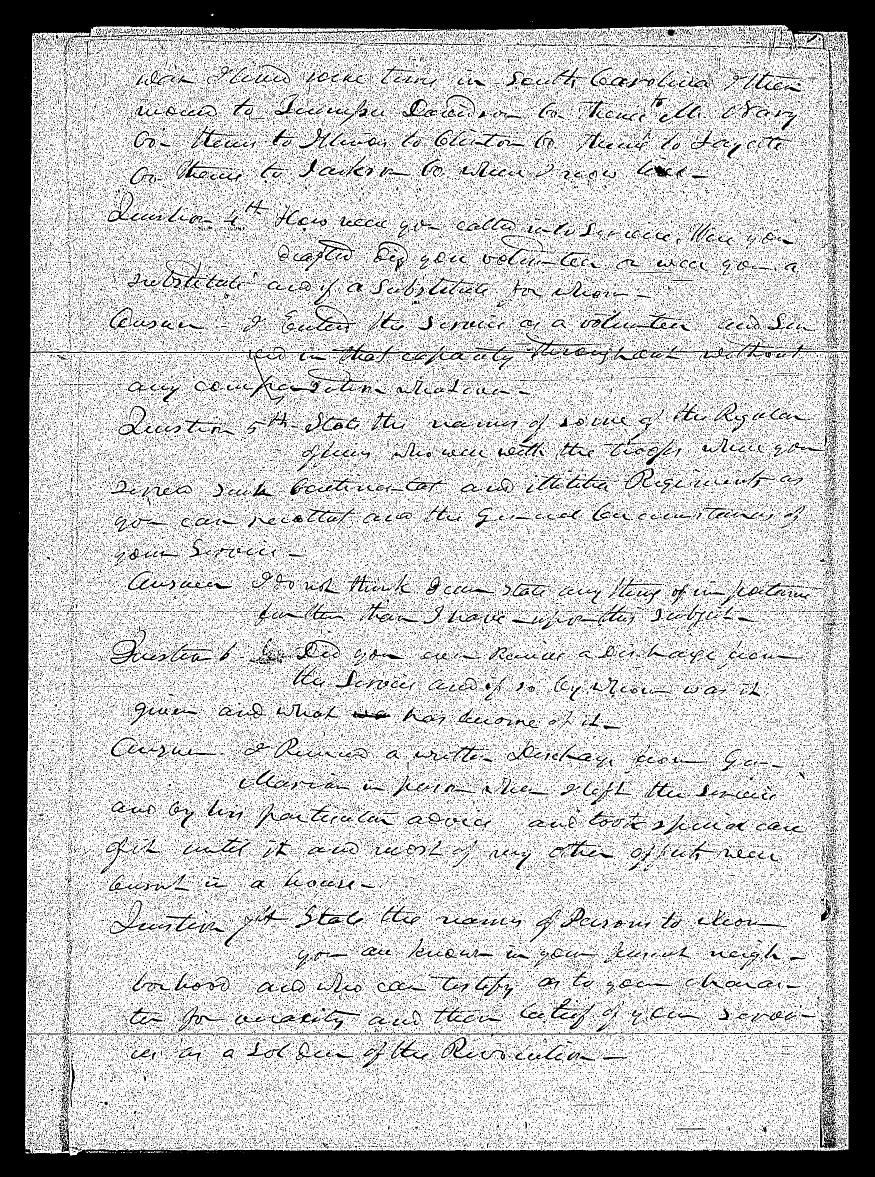 war I lived some time in South Carolina & then
moved to Tennessee Davidson Co thence to M Nary
Co thence to Illinois to Clinton Co thence to Fayette
Co thence to Jackson Co where I now live —
Question 4th How were you called into Service, Were you
drafted did you volunteer or were you a
substitute and if a substitute for whom —
Answer — I Entered the service as a volunteer and Ser
ved in that capacity throughout without
any compensation whatever —
Question 5th State the names of some of the Regular
officers who were with the troops where you
served such Continental and Militia Regiments as
you can recollect and the General Circumstances of
your Service —
Answer I do not think I can state any thing of importance
further than I have upon this subject —
Question 6 Did you ever receive a Discharge from
the Service and if so by whom was it
given and what has become of it —
Answer I Received a written Discharge from Gen
Marion in person when I left the service
and by his particular advice and took special care
of it until it and most of my other effects were
burnt in a house —
Question 7th State the names of Persons to whom
you are known in your present neigh-
borhood and who can testify as to your charac-
ter for veracity and their belief of your servi-
ces as a Soldier of the Revolution —